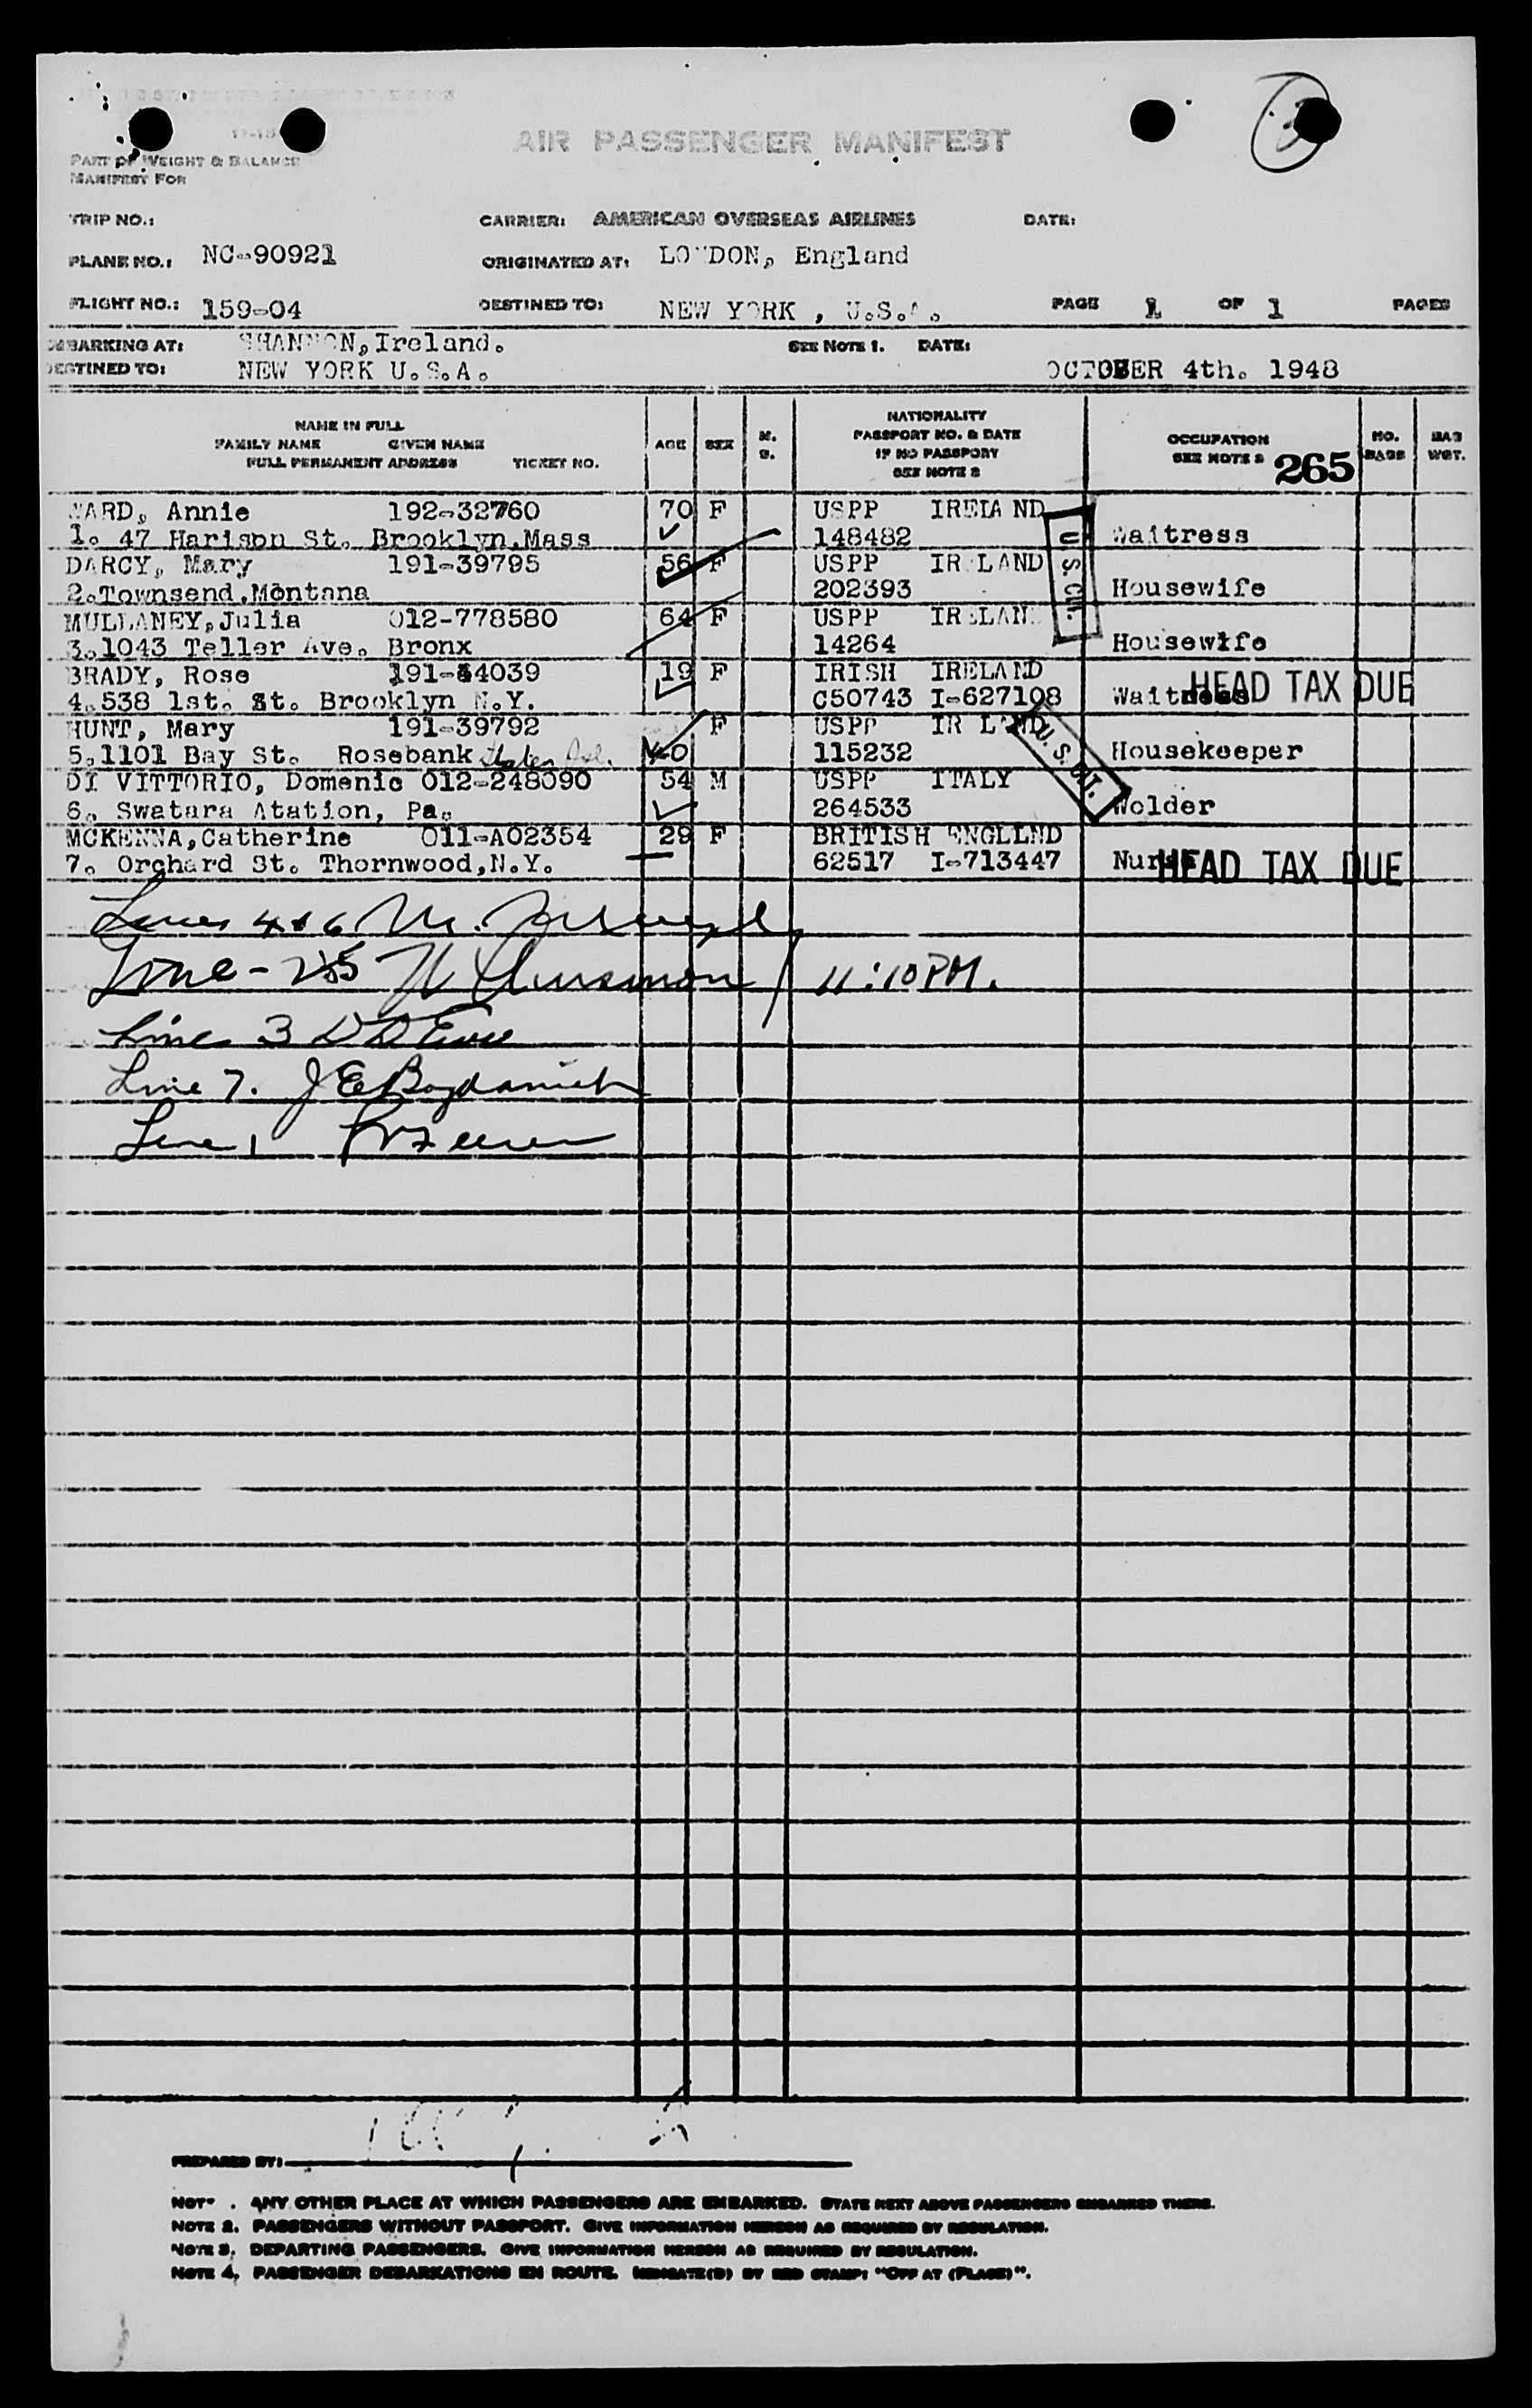 AIR PASSENGER MANIFEST
PART OF WEIGHT & BALANCE
MANIFEST FOR
TRIP NO.: CARRIER: AMERICAN OVERSEAS AIRLINES DATE:
PLANE NO.: NC-90921 ORIGINATED AT: LONDON, England
FLIGHT NO.: 159-04 DESTINED TO: NEW YORK , U.S.A. PAGE 1 OF 1 PAGES
EMBARKING AT: SHANNON,Ireland. SEE NOTE 1. DATE:
DESTINED TO: NEW YORK U.S.A. OCTOBER 4th. 1948
NAME IN FULL
FAMILY NAME GIVEN NAME
FULL PERMANENT ADDRESS TICKET NO.
AGE SEX M. S.
NATIONALITY
PASSPORT NO. & DATE
IF NO PASSPORT
SEE NOTE 2
OCCUPATION
SEE NOTE 2 265
NO. BAGS
BAG WGT.
WARD, Annie 192-32760 70 F USPP IRELAND
1. 47 Harison St. Brooklyn,Mass 148482 Waitress
U.S. CIT.
DARCY, Mary 191-39795 56 F USPP IRELAND
2.Townsend,Montana 202393 Housewife
MULLANEY,Julia 012-778580 64 F USPP IRELAND
3.1043 Teller Ave. Bronx 14264 Housewife
BRADY, Rose 191-44039 19 F IRISH IRELAND
4.538 1st. St. Brooklyn N.Y. C50743 I-627108 Waitress HEAD TAX DUE
HUNT, Mary 191-39792 F USPP IRELAND
5.1101 Bay St. Rosebank Staten Isl. 40 115232 Housekeeper
U. S. CIT.
DI VITTORIO, Domenic 012-248090 54 M USPP ITALY
6. Swatara Atation, Pa. 264533 Wolder
MCKENNA,Catherine 011-A02354 29 F BRITISH ENGLLND
7. Orchard St. Thornwood,N.Y. 62517 I-713447 Nurse HEAD TAX DUE
Lines 4 & 6 M.
Line - 2 & 5 11:10 PM.
Line 3
Line 7. J E Bogdanich
Line 1
PREPARED BY:
NOTE . ANY OTHER PLACE AT WHICH PASSENGERS ARE EMBARKED. STATE NEXT ABOVE PASSENGERS EMBARKED THERE.
NOTE 2. PASSENGERS WITHOUT PASSPORT. GIVE INFORMATION HEREON AS REQUIRED BY REGULATION.
NOTE 3. DEPARTING PASSENGERS. GIVE INFORMATION HEREON AS REQUIRED BY REGULATION.
NOTE 4. PASSENGER DEBARKATIONS EN ROUTE. INDICATE(D) BY RED STAMP: "OFF AT (PLACE)".